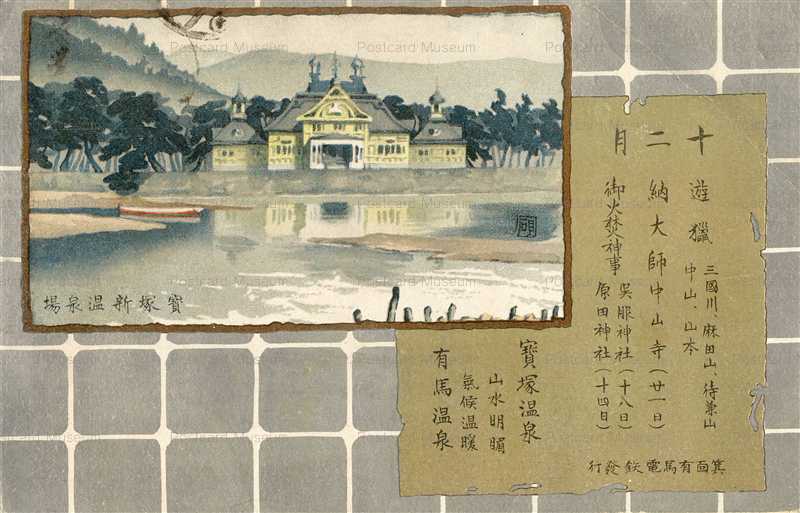 寶塚新温泉場
十二月
遊獵 三國川、麻田山、待兼山
中山、山本
納大師 中山寺(廿一日)
御火焚神事 呉服神社(十八日)
原田神社(十四日)
寶塚温泉
山水明媚
氣候温暖
有馬温泉
箕面有馬電鉄發行
Postcard Museum